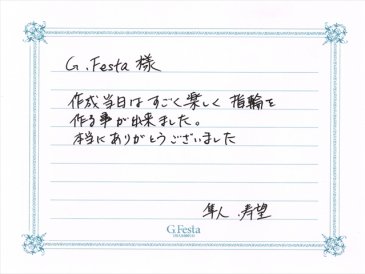 G.Festa 様
作成当日はすごく楽しく 指輪を
作る事が出来ました。
本当にありがとうございました
隼人.寿望
G.Festa